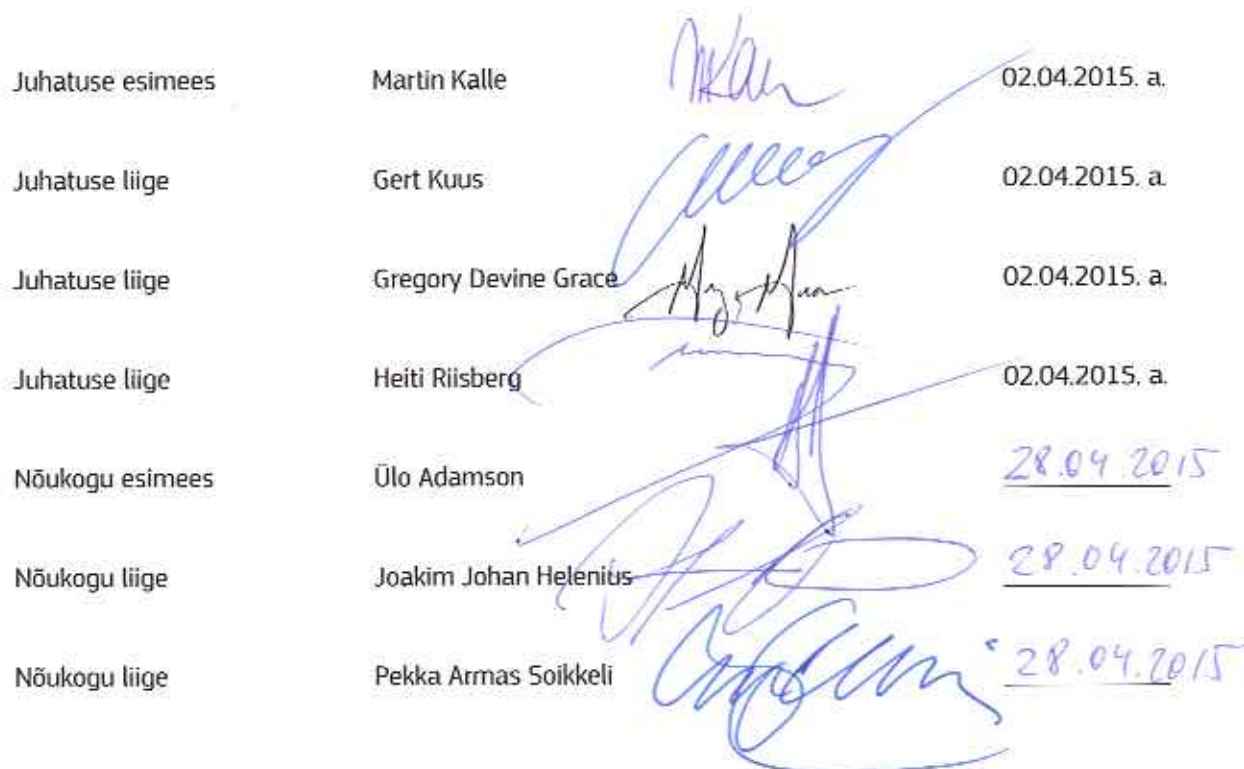 Juhatuse esimees Martin Kalle 02.04.2015. a.
Juhatuse liige Gert Kuus 02.04.2015. a.
Juhatuse liige Gregory Devine Grace 02.04.2015. a.
Juhatuse liige Heiti Riisberg 02.04.2015. a.
Nõukogu esimees Ülo Adamson 28.04.2015
Nõukogu liige Joakim Johan Helenius 28.04.2015
Nõukogu liige Pekka Armas Soikkeli 28.04.2015